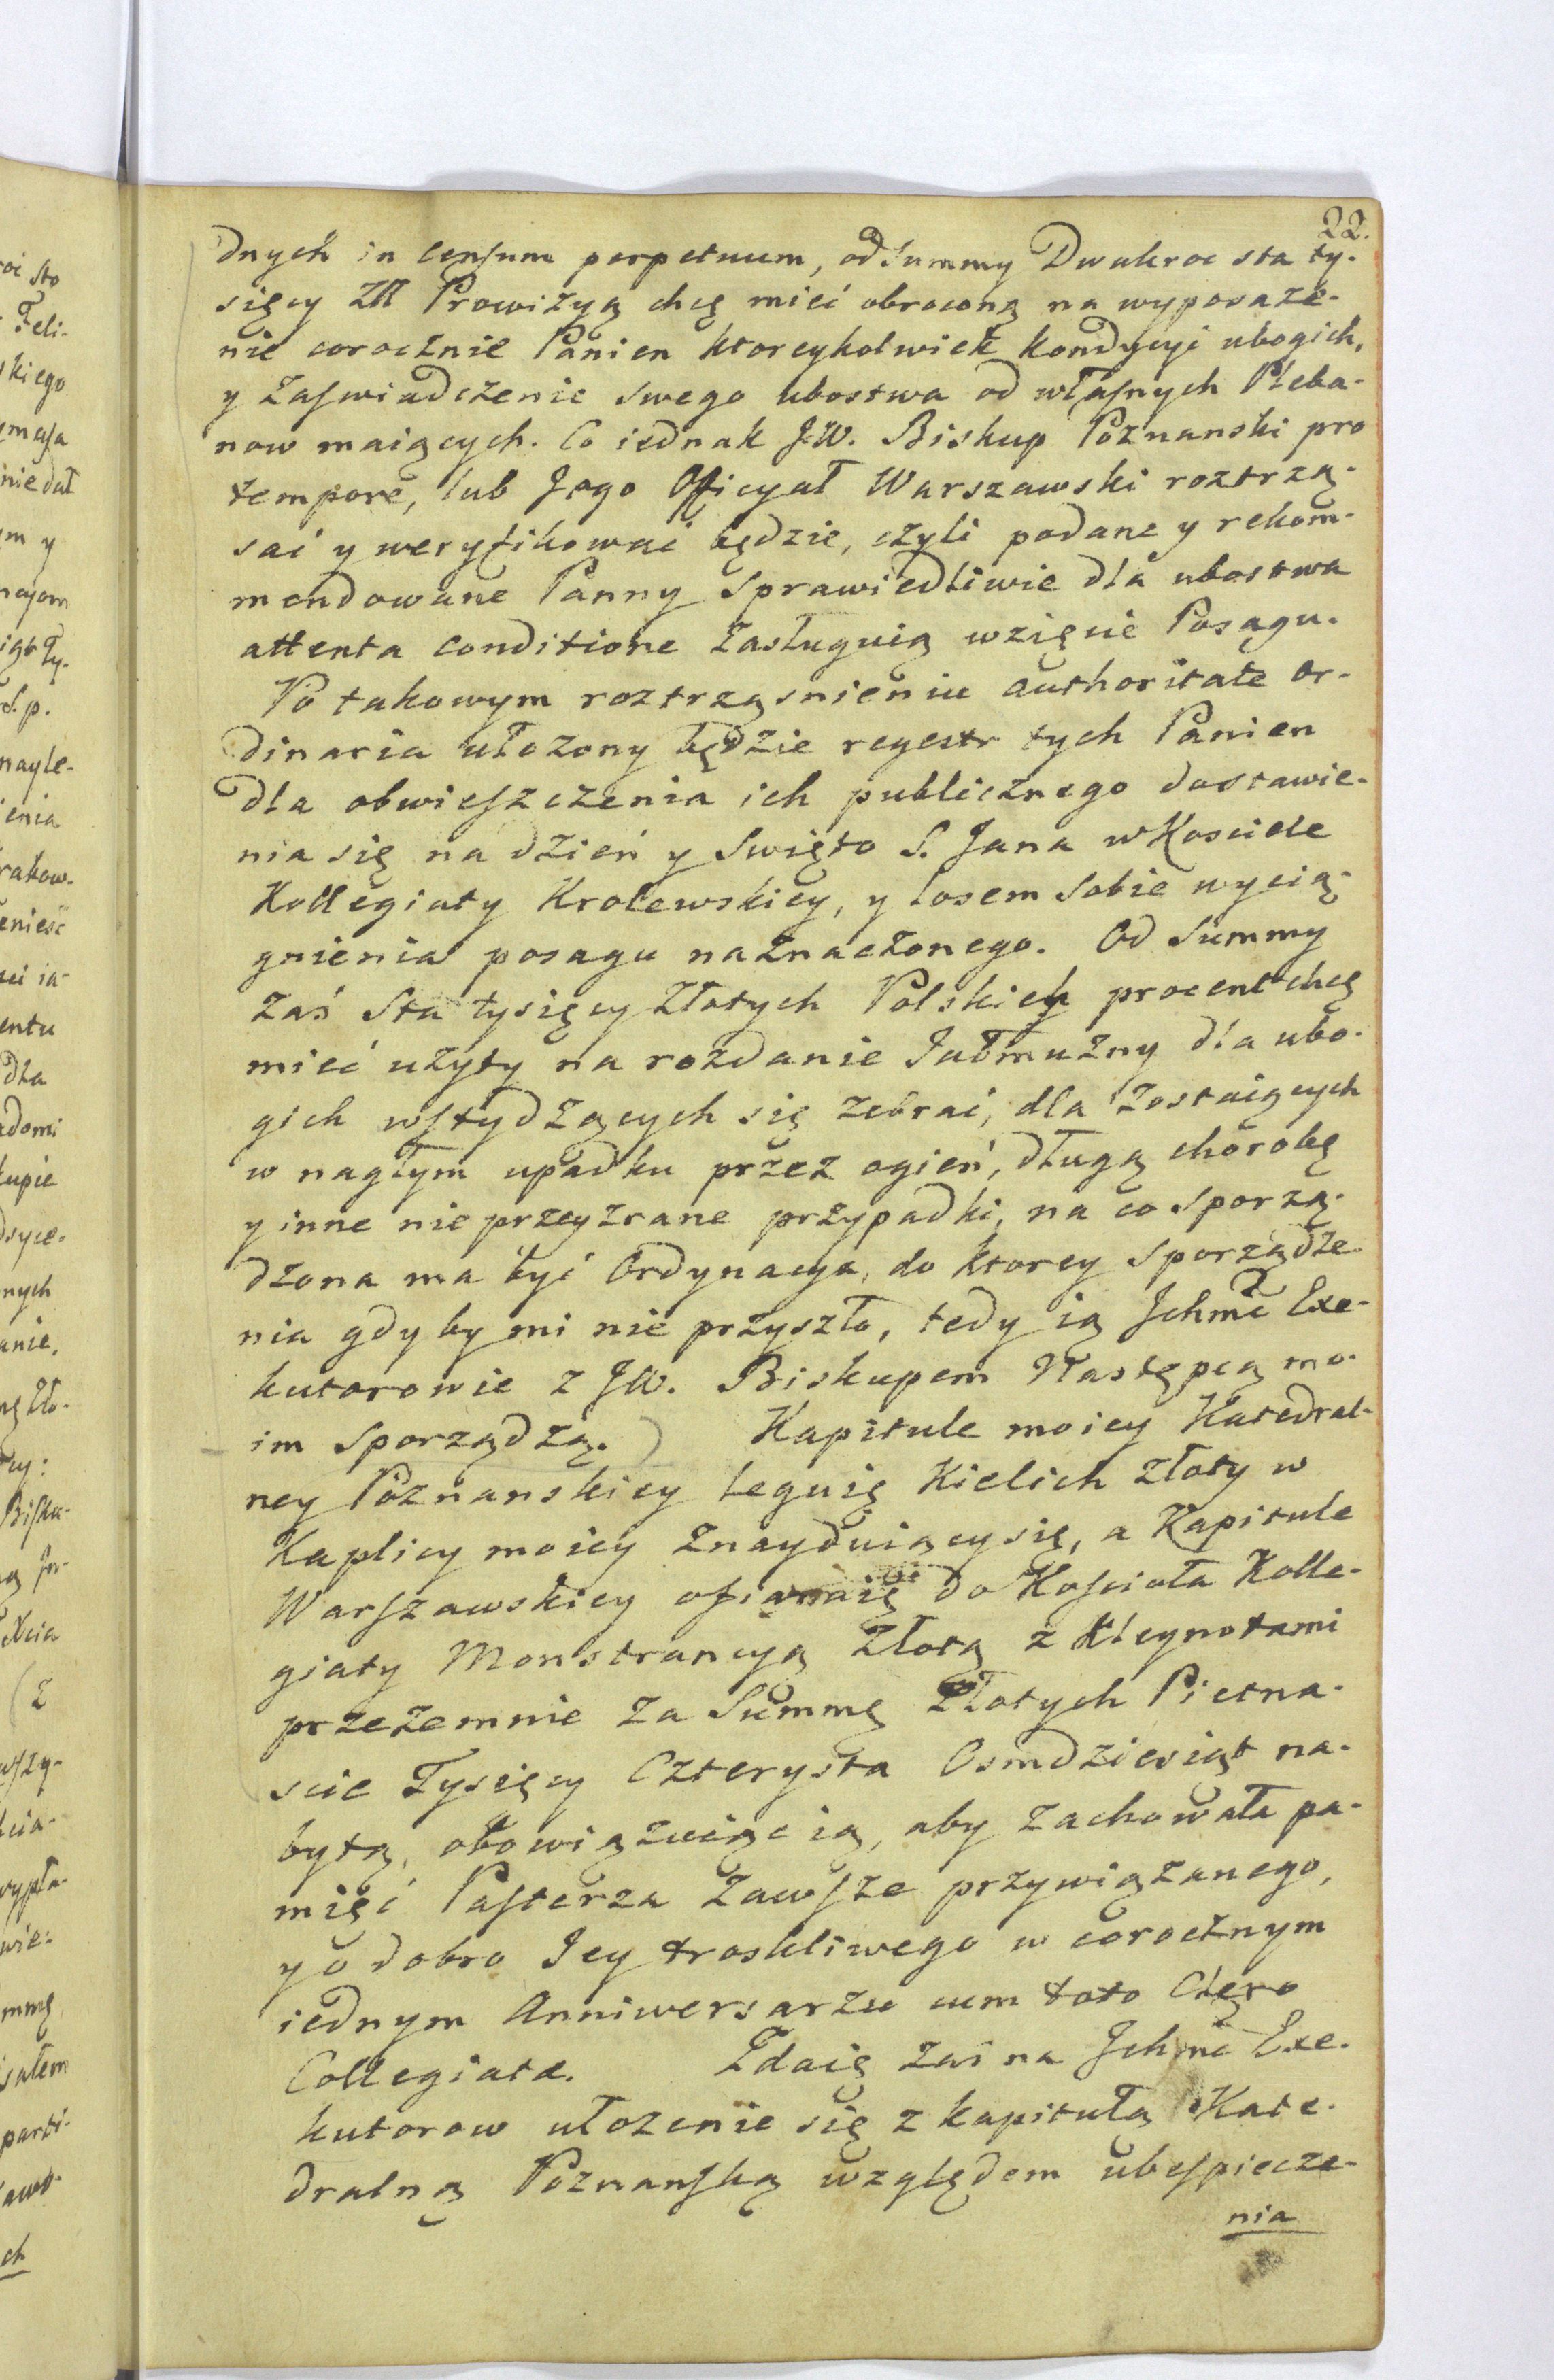 22.
dnych in censum perpetuum, od Summy Dwukroc sta ty-
sięcy Złł Prowizyą chcę mieć obroconą na wyposaże-
nie corocznie Panien ktoreykolwiek kondycyi ubogich,
y zaswiadczenie swego ubostwa od własnych Pleba-
now maiących. Co iednak J.W. Biskup Poznanski pro
tempore, lub Jego Officyał Warszawski roztrzą-
sać y weryfikować będzie, czyli podane y rekom-
mendowane Panny sprawiedliwie dla ubostwa
attenta conditione zasługuią wzięcie Posagu.
Po takowym roztrząsnieniu authoritate or-
dinaria ułozony będzie regestr tych Panien
dla obwieszczenia ich publicznego dostawie-
nia się na dzień y Swięto S. Jana w Kosciele
Kollegiaty Krolewskiey, y losem sobie wycią-
gnienia posagu naznaczonego. Od Summy
zaś Sta tysięcy Złotych Polskich procent chcę
mieć użyty na rozdanie Jałmużny dla ubo-
gich wstydzących się żebrać, dla zostaiących
w nagłym upadku przez ogień, długą chorobę
y inne nie przeyzrane przypadki, na co sporzą-
dzona ma być Ordynacya, do ktorey sporządze-
nia gdyby mi nie przyszło, tedy ią Jchmć Exe-
kutorowie z JW. Biskupem Następcą mo-
im sporządzą.) Kapitule moiey Katedral-
ney Poznanskiey leguię Kielich złoty w
Kaplicy moiey znayduiący się, a Kapitule
Warszawskiey ofiaruię do Koscioła Kolle-
giaty Monstrancyą złotą z Kleynotami
przezemnie za Summę Złotych Pietna-
scie Tysięcy Czterysta Osmdziesiąt na-
bytą, obowiązuiąc ią, aby zachowała pa-
mięć Pasterza zawsze przywiązanego,
y o dobro Jey troskliwego w corocznym
iednym Anniwersarzu cum toto Clero
Collegiatæ. Zdaię zaś na Jchmć Exe-
kutorow ułozenie się z kapitułą Kate-
dralną Poznanską względem ubespiecze-
nia